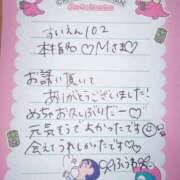 すいえん102
本指名♡Mさま♡
お誘い頂いて
ありがとうございました!
めちゃお久しぶりだー♡
元気そうでよかったです☺
会えてうれしかったです♡